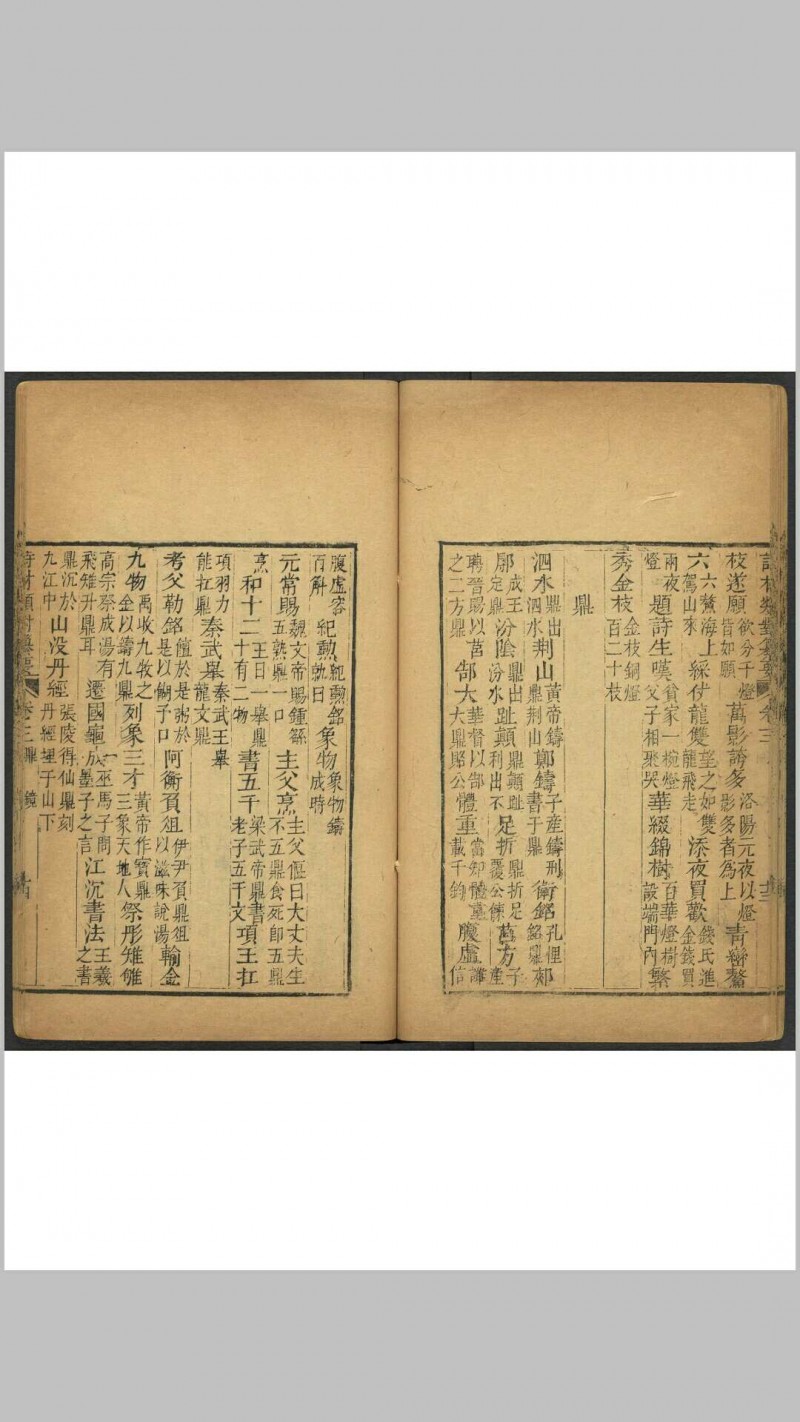 詩材類對纂要 卷三 十三
枝遂願 欲分千燈 皆如願 萬影誇多 洛陽元夜以燈 影多者為上 青巒鰲
六 六鰲海上 駕山來 綵仗龍雙 望之如雙 龍飛走 添夜買歡 錢氏進 金錢買
兩夜 燈 題詩生嘆 貧家一椀燈 父子相聚哭 華綴錦樹 百華燈樹 設端門內 繁
秀金枝 金枝銅燈 百二十枝
鼎
泗水 鼎出 泗水 荆山 黃帝鑄 鼎荆山 鄭鑄 子產鑄刑 書于鼎 衛銘 孔悝 銘鼎 郟
鄏 成王 定鼎 汾陰 鼎出 汾水 趾顛 鼎顛趾 利出不 足折 鼎折足 覆公餗 莒方 子 產
聘晉賜以莒 之二方鼎 郜大 華督以郜 大鼎賂公 體重 當知體重 載千鈞 腹虛 誰 信
腹虛容 百斛 紀勲 紀勲銘 曰 象物 象物鑄 成時
元常賜 魏文帝賜鍾繇 五熟鼎一口 主父烹 主父偃曰大丈夫生 不五鼎食死卽五鼎
烹 和十二 王曰一舉鼎 十有二物 書五千 梁武帝鼎書 老子五千文 項王扛
項羽力 能扛鼎 秦武舉 秦武王舉 龍文鼎
考父勒銘 饘於是粥於 是以餬予口 阿衡負俎 伊尹負鼎俎 以滋味說湯 輸金
九物 禹收九牧之 金以鑄九鼎 列象三才 黃帝作寶鼎 三象天地人 祭肜雉雊
高宗祭成湯有 飛雉升鼎耳 遷國龜成 巫馬子問 成墨子之言 江沉書法 王羲 之書
鼎沉於 九江中 山没丹經 張陵得仙鼎刻 丹經埋于山下
詩材類對纂要 卷三 鼎 鏡